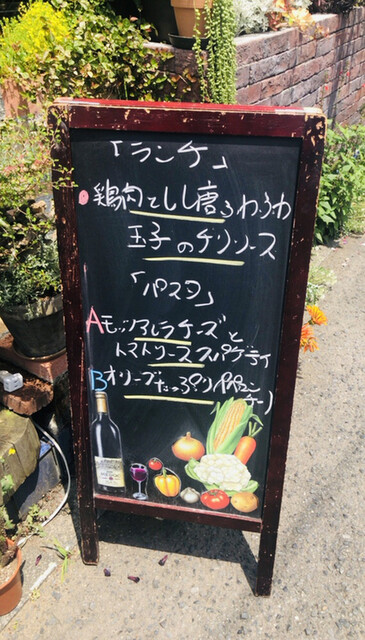 「ランチ」
鶏肉としし唐ふわふわ
玉子のチリソース
「パスタ」
Aモッツァレラチーズと
トマトソーススパゲティ
Bオリーブたっぷりペペロン
チー)